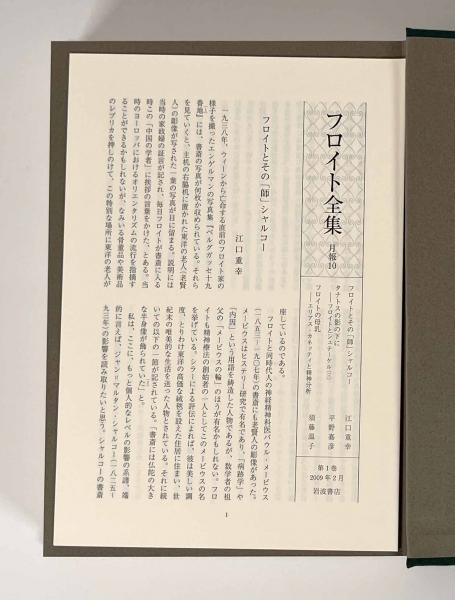 フロイト全集
月報10
フロイトとその「師」シャルコー
江口重幸
タナトスの影の下に
――フロイトとシュテーケル
平野嘉彦
フロイトの母乳
――エリアス・カネッティと精神分析
須藤温子
第1巻
2009年2月
岩波書店
フロイトとその「師」シャルコー
江口重幸
一九三八年、ウィーンから亡命する直前のフロイト家の
様子を撮ったエンゲルマンの写真集『ベルクガッセ十九
番地』には、書斎の写真が何枚か収められている。それら
を見ていくと、主机の右脇机に置かれた東洋の老人(老賢
人)の彫像が写された一葉の写真が目に留まる。説明には
当時の家政婦の証言が記され、毎日フロイトが書斎に入る
時この「中国の学者」に挨拶の言葉をかけた、とある。当
時のヨーロッパにおけるオリエンタリズムの流行を指摘す
ることができるかもしれないが、なみいる骨董品や美術品
のレプリカを押しのけて、この特別な場所に東洋の老人が
座しているのである。
フロイトと同時代人の神経精神科医パウル・メービウス
(一八五三―一九〇七年)の書斎にも老賢人の彫像があった。
メービウスはヒステリー研究で有名であり、「病跡学」や
「内因」という用語を鋳造した人物であるが、数学者の祖
父の「メービウスの輪」のほうが有名かもしれない。フロ
イトも精神療法の創始者の一人としてこのメービウスの名
を挙げている。シラーによる評伝によれば、彼は美しい調
度、とりわけ東洋の高価な絨毯を設えた住居に住まい、世
紀末の唯美的な生活を送った人物とされている。それに続
いて以下の一節が記されている。「書斎には仏陀の大き
な半身像が飾られていた」と。
私は、ここに、もっと個人的なレベルの影響の系譜、端
的に言えば、ジャン＝マルタン・シャルコー(一八二五―
九三年)の影響を読み取りたいと思う。シャルコーの書斎
1